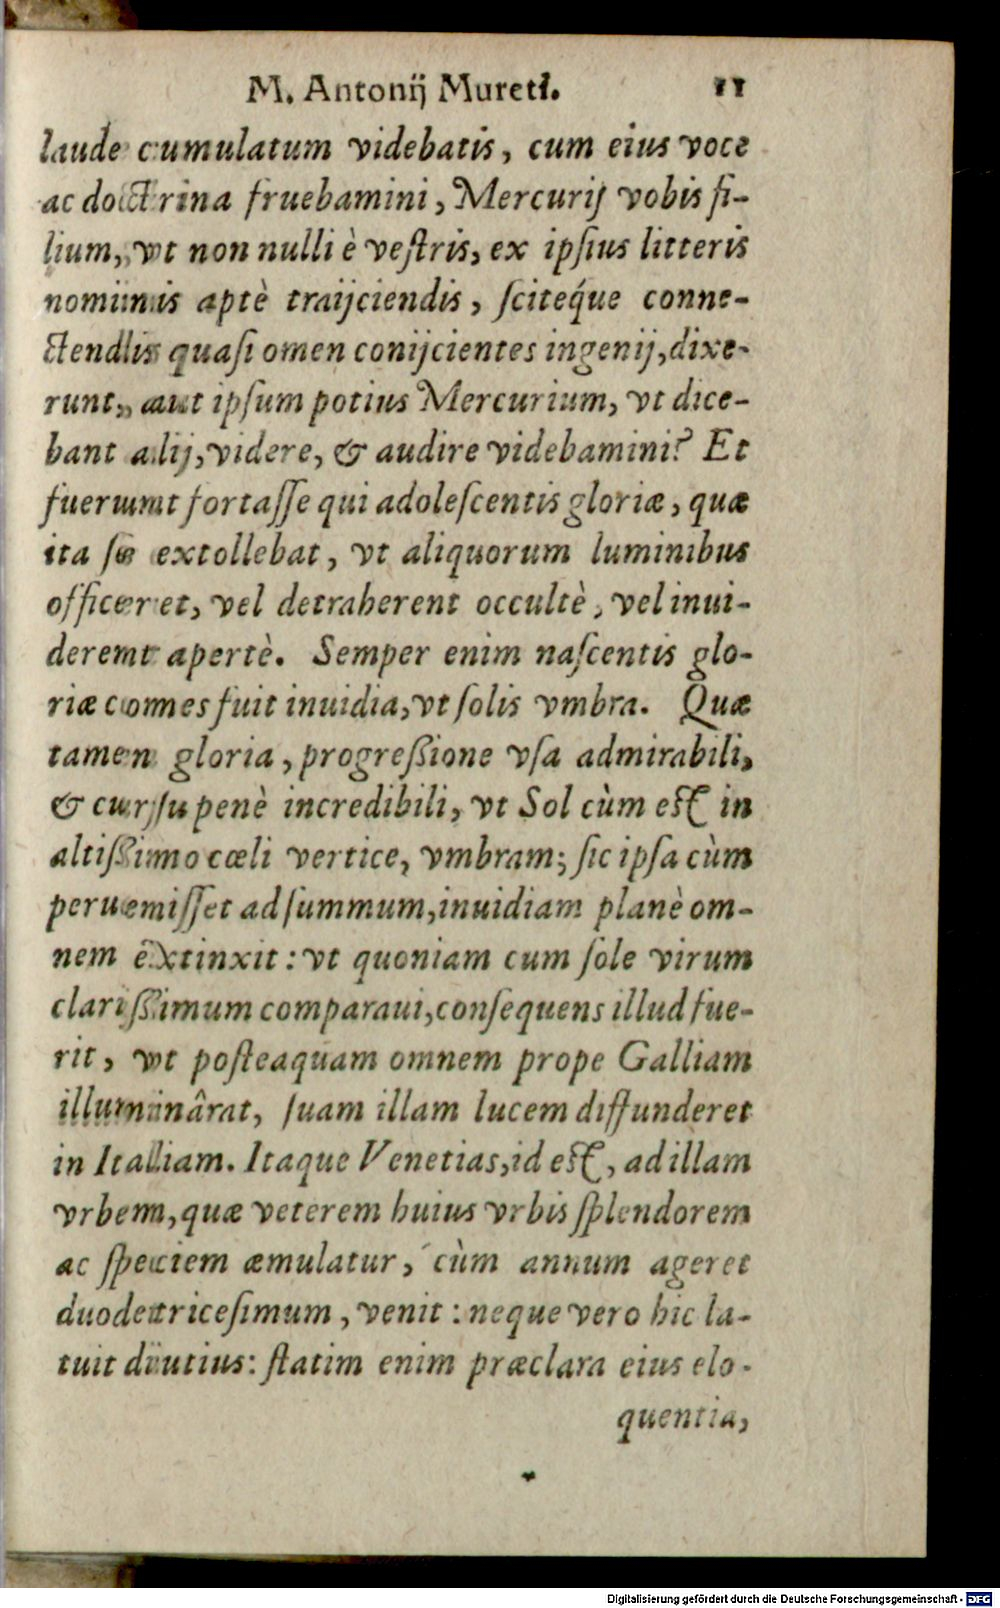 M. Antonij Mureti. 11
laude cumulatum videbatis, cum eius voce
ac doctrina fruebamini, Mercurij vobis fi-
lium, vt non nulli è vestris, ex ipsius litteris
nominis aptè traijciendis, sciteq́ue conne-
ctendis quasi omen conijcientes ingenij, dixe-
runt, aut ipsum potius Mercurium, vt dice-
bant alij, videre, & audire videbamini? Et
fuerunt fortasse qui adolescentis gloriæ, quæ
ita se extollebat, vt aliquorum luminibus
officeret, vel detraherent occultè, vel inui-
derent apertè. Semper enim nascentis glo-
riæ comes fuit inuidia, vt solis vmbra. Quæ
tamen gloria, progreßione vsa admirabili,
& cursu penè incredibili, vt Sol cùm est in
altißimo cœli vertice, vmbram; sic ipsa cùm
peruenisset ad summum, inuidiam planè om-
nem extinxit: vt quoniam cum sole virum
clarißimum comparaui, consequens illud fue-
rit, vt posteaquam omnem prope Galliam
illuminârat, suam illam lucem diffunderet
in Italiam. Itaque Venetias, id est, ad illam
vrbem, quæ veterem huius vrbis splendorem
ac speciem æmulatur, cùm annum ageret
duodetricesimum, venit: neque vero hic la-
tuit diutius: statim enim præclara eius elo-
quentia,
Digitalisierung gefördert durch die Deutsche Forschungsgemeinschaft - DFG